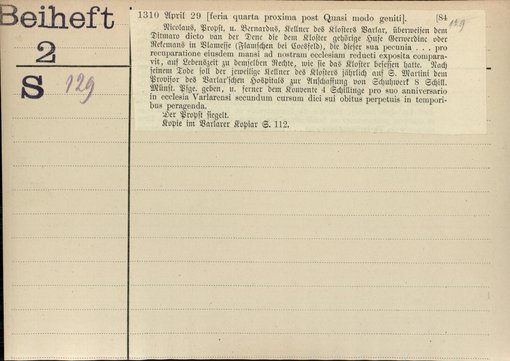 Beiheft
2
S 129
1310 April 29 [feria quarta proxima post Quasi modo geniti]. [84
129
Nicolaus, Propst, u. Bernardus, Kellner des Klosters Varlar, überweisen dem
Ditmaro dicto van der Dene die dem Kloster gehörige Hufe Gerwerdinc oder
Rekemans in Vlamesse (Flamschen bei Coesfeld), die dieser sua pecunia . . . pro
recuparatione eiusdem mansi ad nostram ecclesiam reducti exposita compara-
vit, auf Lebenszeit zu demselben Rechte, wie sie das Kloster besessen hatte. Nach
seinem Tode soll der jeweilige Kellner des Klosters jährlich auf S. Martini dem
Provisor des Varlar'schen Hospitals zur Anschaffung von Schuhwerk 8 Schill.
Münst. Pfge. geben, u. ferner dem Konvente 4 Schillinge pro suo anniversario
in ecclesia Varlarensi secundum cursum diei sui obitus perpetuis in tempori-
bus peragenda.
Der Propst siegelt.
Kopie im Varlarer Kopiar S. 112.